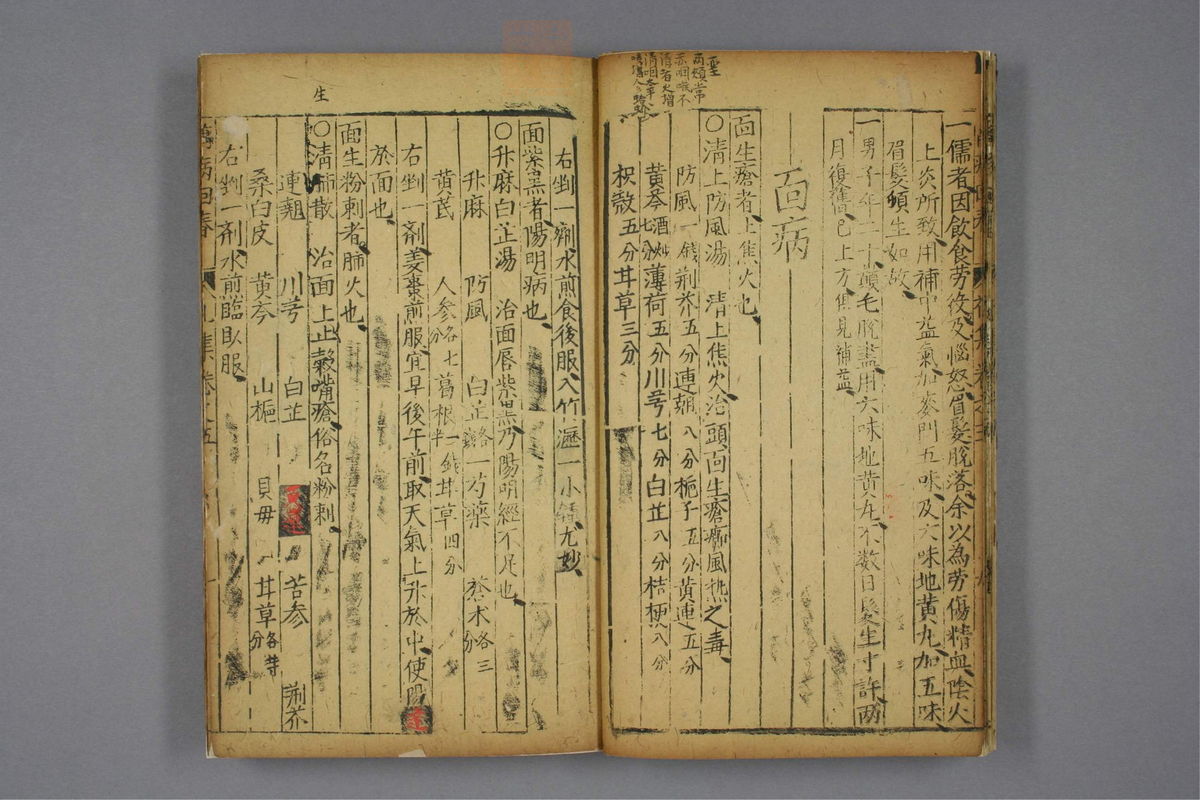 一儒者因飲食劳役及惱怒眉髮脫落余以為劳傷精血陰火
上炎所致用補中益氣加麥門五味及六味地黄丸加五味
眉髮頓生如故
一男子年二十巔毛脫盡用六味地黄丸不数日髮生寸許两
月復舊已上方俱見補益
面病
面生瘡者上焦火也
〇清上防風湯 清上焦火治頭面生瘡癤風热之毒
防風一錢荆芥五分連翹八分梔子五分黄連五分
黄芩酒炒七分薄荷五分川芎七分白芷八分桔梗八分
枳殻五分甘草三分
右剉一劑水煎食後服入竹瀝一小鍾尤妙
面紫黒者陽明病也
〇升麻白芷湯 治面唇紫黒乃陽明經不足也
升麻 防風 白芷各一 芍藥 蒼术各三分
黄芪 人参各七分 葛根一錢半 甘草四分
右剉一剤姜棗煎服宜早後午前取天氣上升於中使陽
於面也
面生粉刺者肺火也
〇清肺散 治面上止穀嘴瘡俗名粉刺
連翹 川芎 白芷 苦参 荆芥
桑白皮 黄芩 山梔 貝母 甘草各等分
右剉一剤水煎臨卧服
生